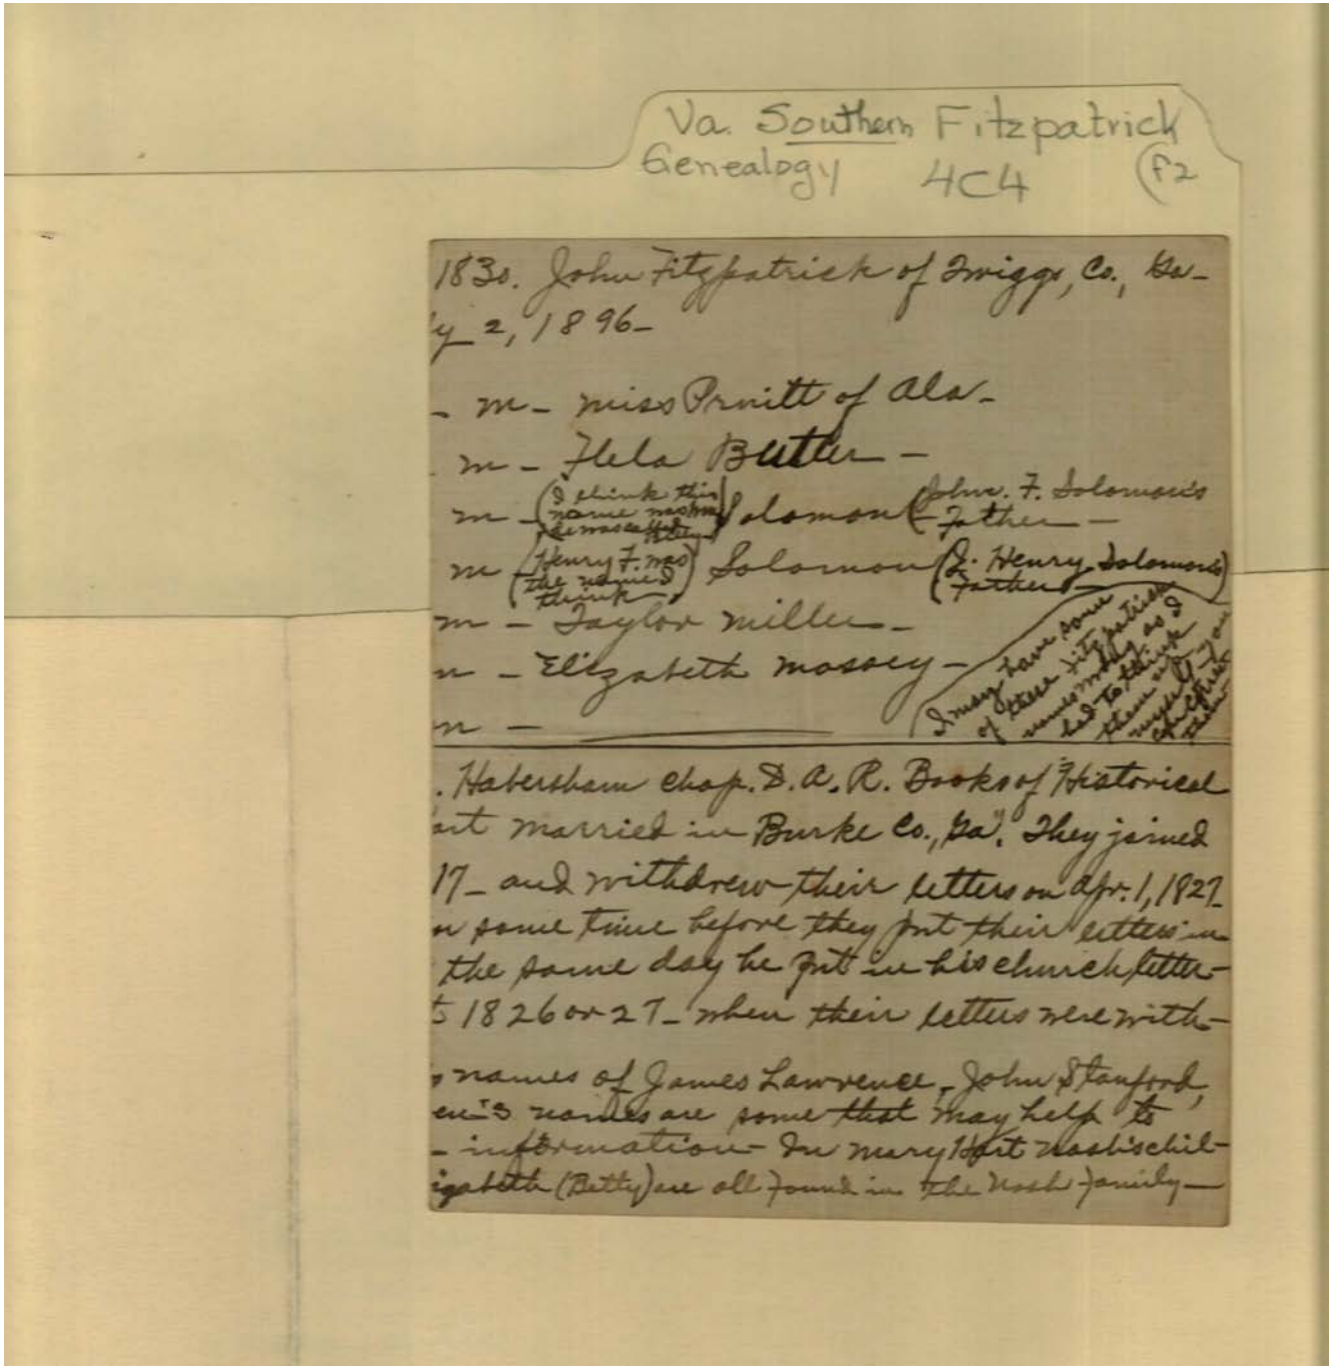 Va. Southern Fitzpatrick
Genealogy 4C4 (F2
1830. John Fitzpatrick of Twiggs, Co., Ga-
y 2, 1896-
- m- miss Pruitt of Ala-
m - Flela Butler -
m - (I think this name was he was called) Solomon (John. F. Solomon's Father -
m (Henry F. was the name I think) Solomon (J. Henry Solomon's Father)
m - Taylor miller -
n - Elizabeth massey -
n -
I may have some
of these Fitzpatrick
names as I
had to think
them up
myself you
children
them
. Habersham chap. D.A.R. Books of "Historical
art married in Burke Co., Ga". They joined
17- and withdrew their letters on Apr. 1, 1827-
n some time before they put their letters in
the same day he put in his church letter-
5 1826 or 27- when their letters were with-
names of James Lawrence, John Stanford,
en's names are some that may help to
- information- In mary Hart Nash's chil-
izabeth (Betty) are all found in the Nash family-